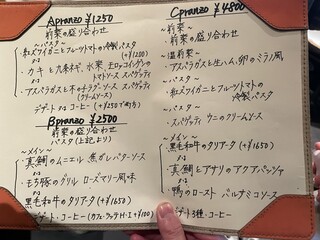 Apranzo ¥1250
前菜の盛り合わせ
~パスタ~
・紅ズワイガニとフルーツトマトの冷製パスタ
(+¥1200)
or
・カキと九条ネギ、水菜
トマトソース スパゲッティ
or
・アスパラガスと
(クリームソース)
デザート コーヒー (+250で
Bpranzo ¥2500
前菜の盛り合わせ
パスタ (上記より)
~メイン~
・真鯛のムニエル 焦がしバターソース
or
・もち豚のグリル ローズマリー風味
or
・黒毛和牛のタリアータ (+¥1650)
デザート・コーヒー
Cpranzo ¥4800
~前菜~
・前菜の盛り合わせ
~温前菜~
・アスパラガスと生ハム、卵のミラノ風
~パスタ~
・紅ズワイガニとフルーツトマトの
冷製パスタ
~パスタ~
・スパゲッティ ウニのクリームソース
~メイン~
・黒毛和牛のタリアータ (+¥1650)
or
・真鯛とアサリのアクアパッツァ
or
・鴨のロースト バルサミコソース
デザート3種・コーヒー